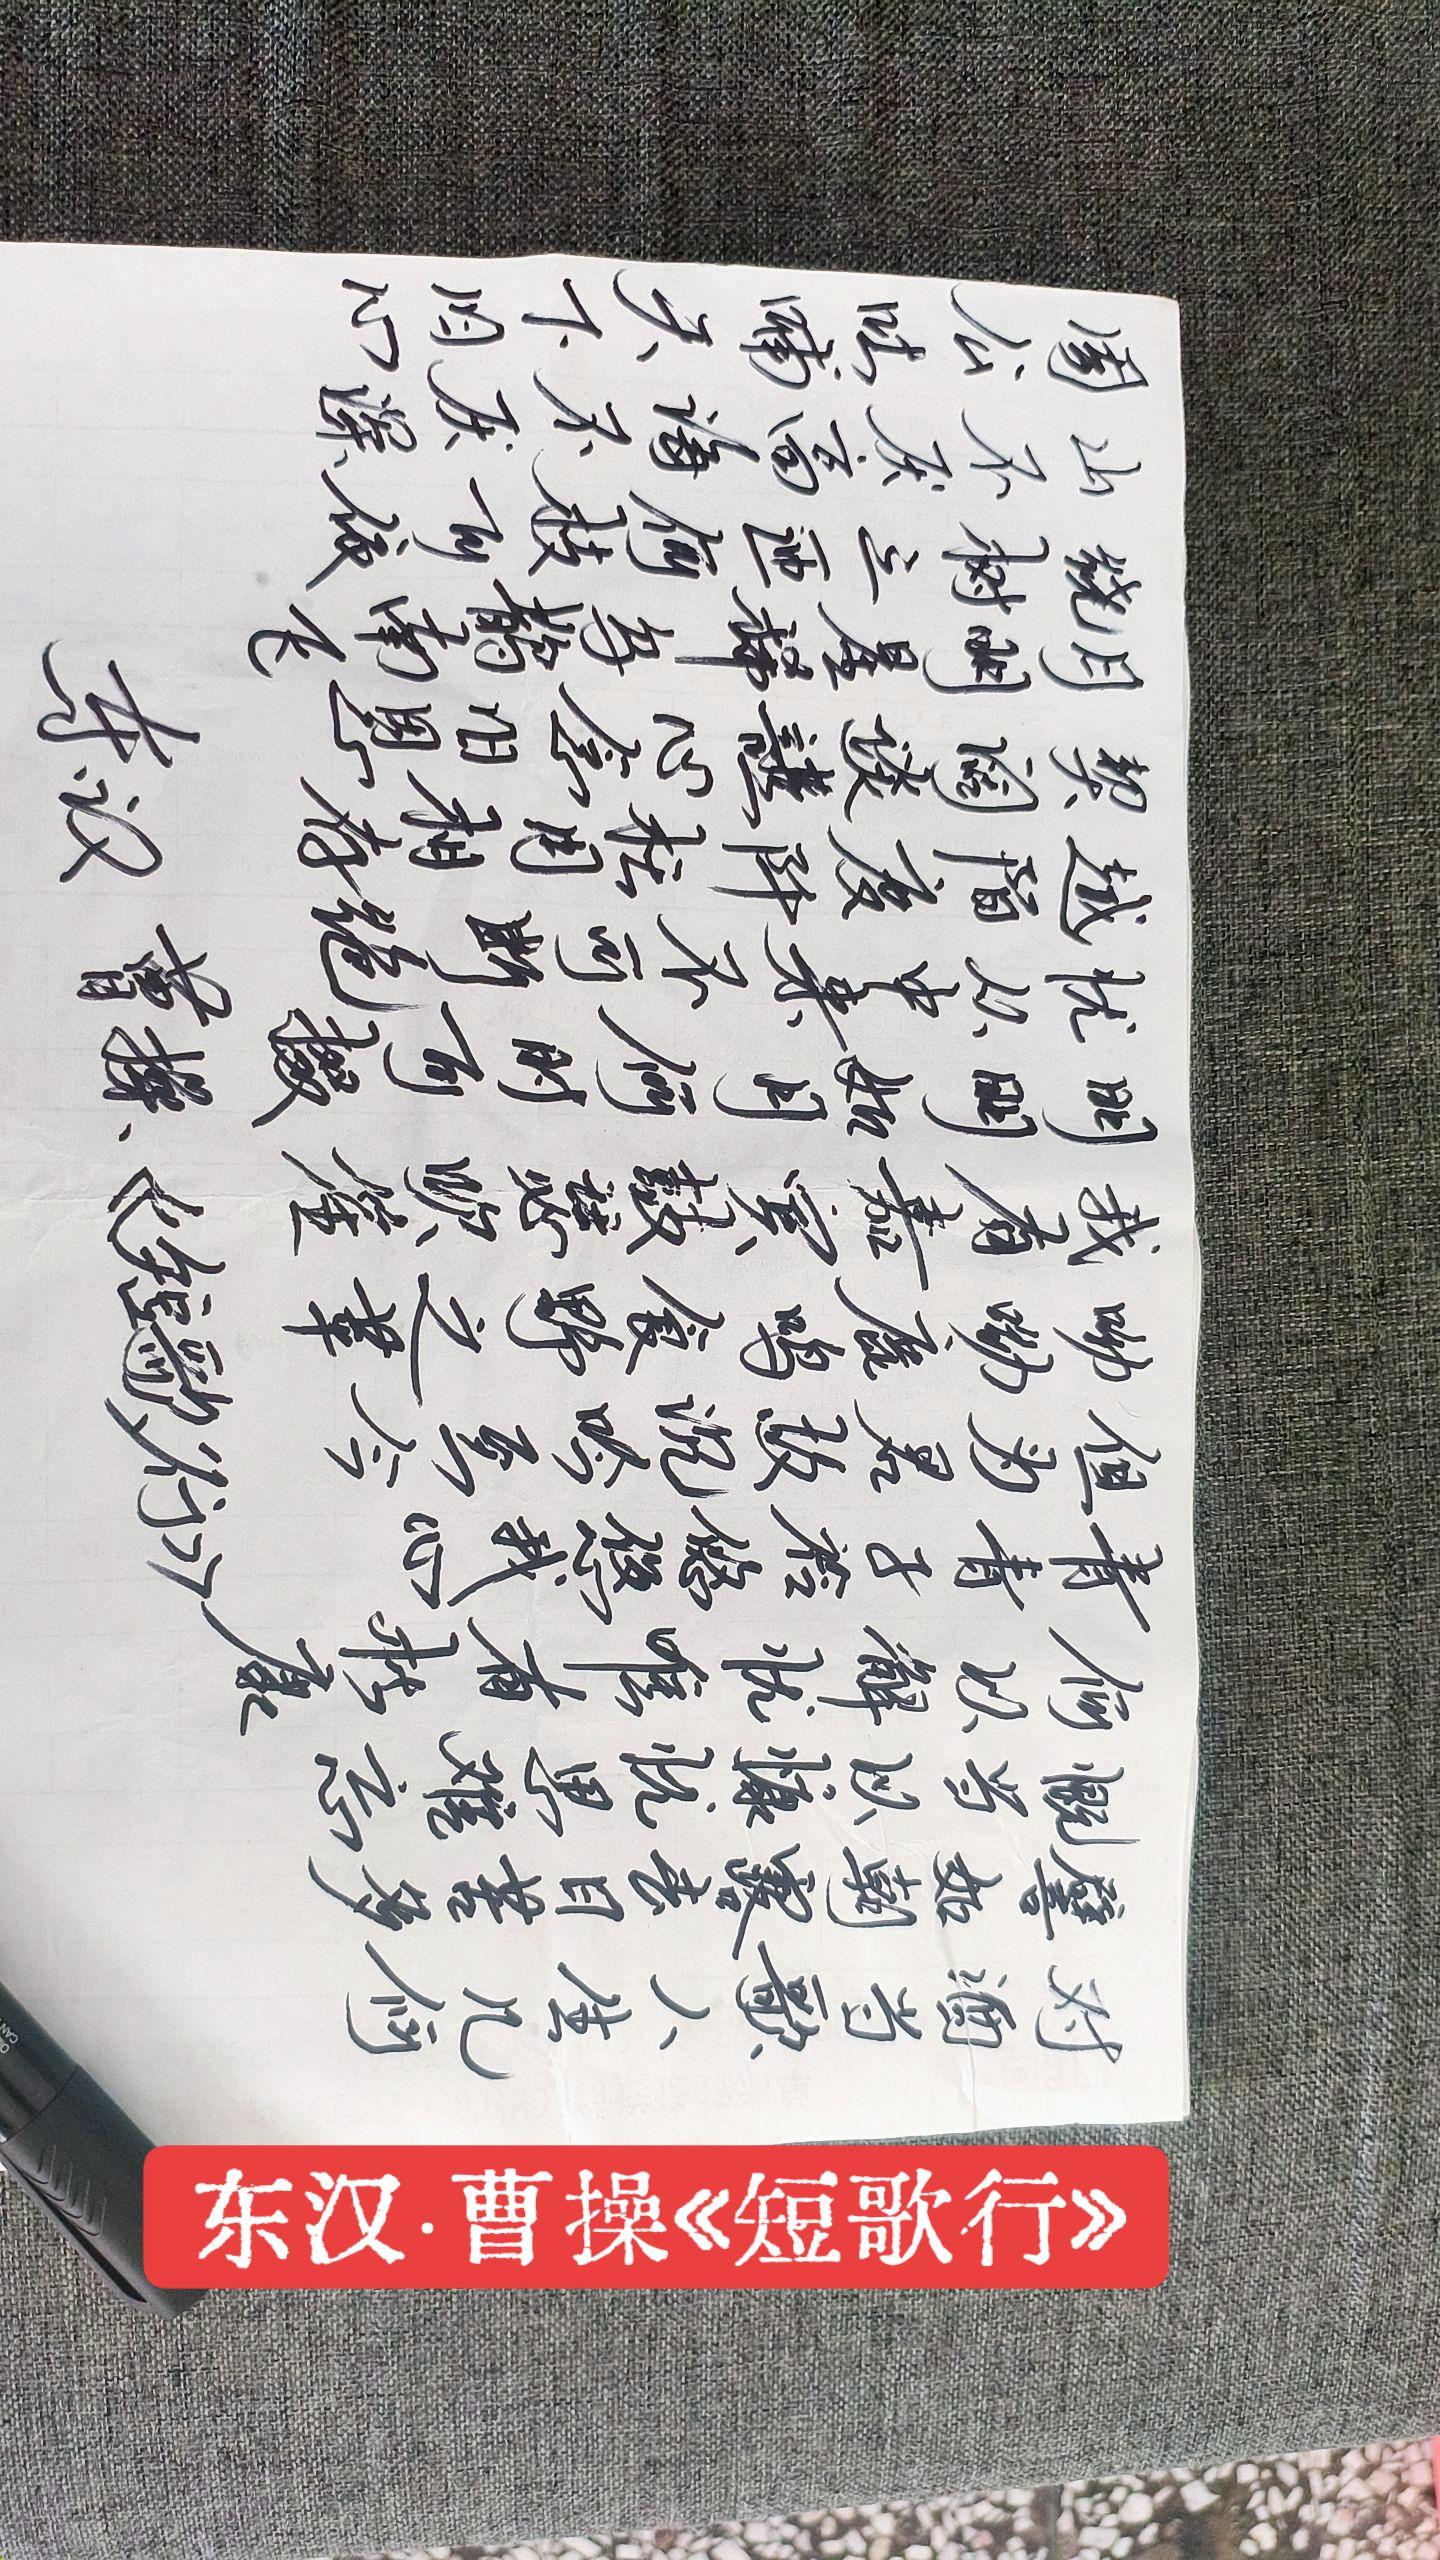 对酒当歌人生几何
譬如朝露去日苦多
慨当以慷忧思难忘
何以解忧唯有杜康
青青子衿悠悠我心
但为君故沉吟至今
呦呦鹿鸣食野之苹
我有嘉宾鼓瑟吹笙
明明如月何时可掇
忧从中来不可断绝
越陌度阡枉用相存
契阔谈讌心念旧恩
月明星稀乌鹊南飞
绕树三匝何枝可依
山不厌高海不厌深
周公吐哺天下归心
东汉 曹操、《短歌行》
东汉·曹操《短歌行》